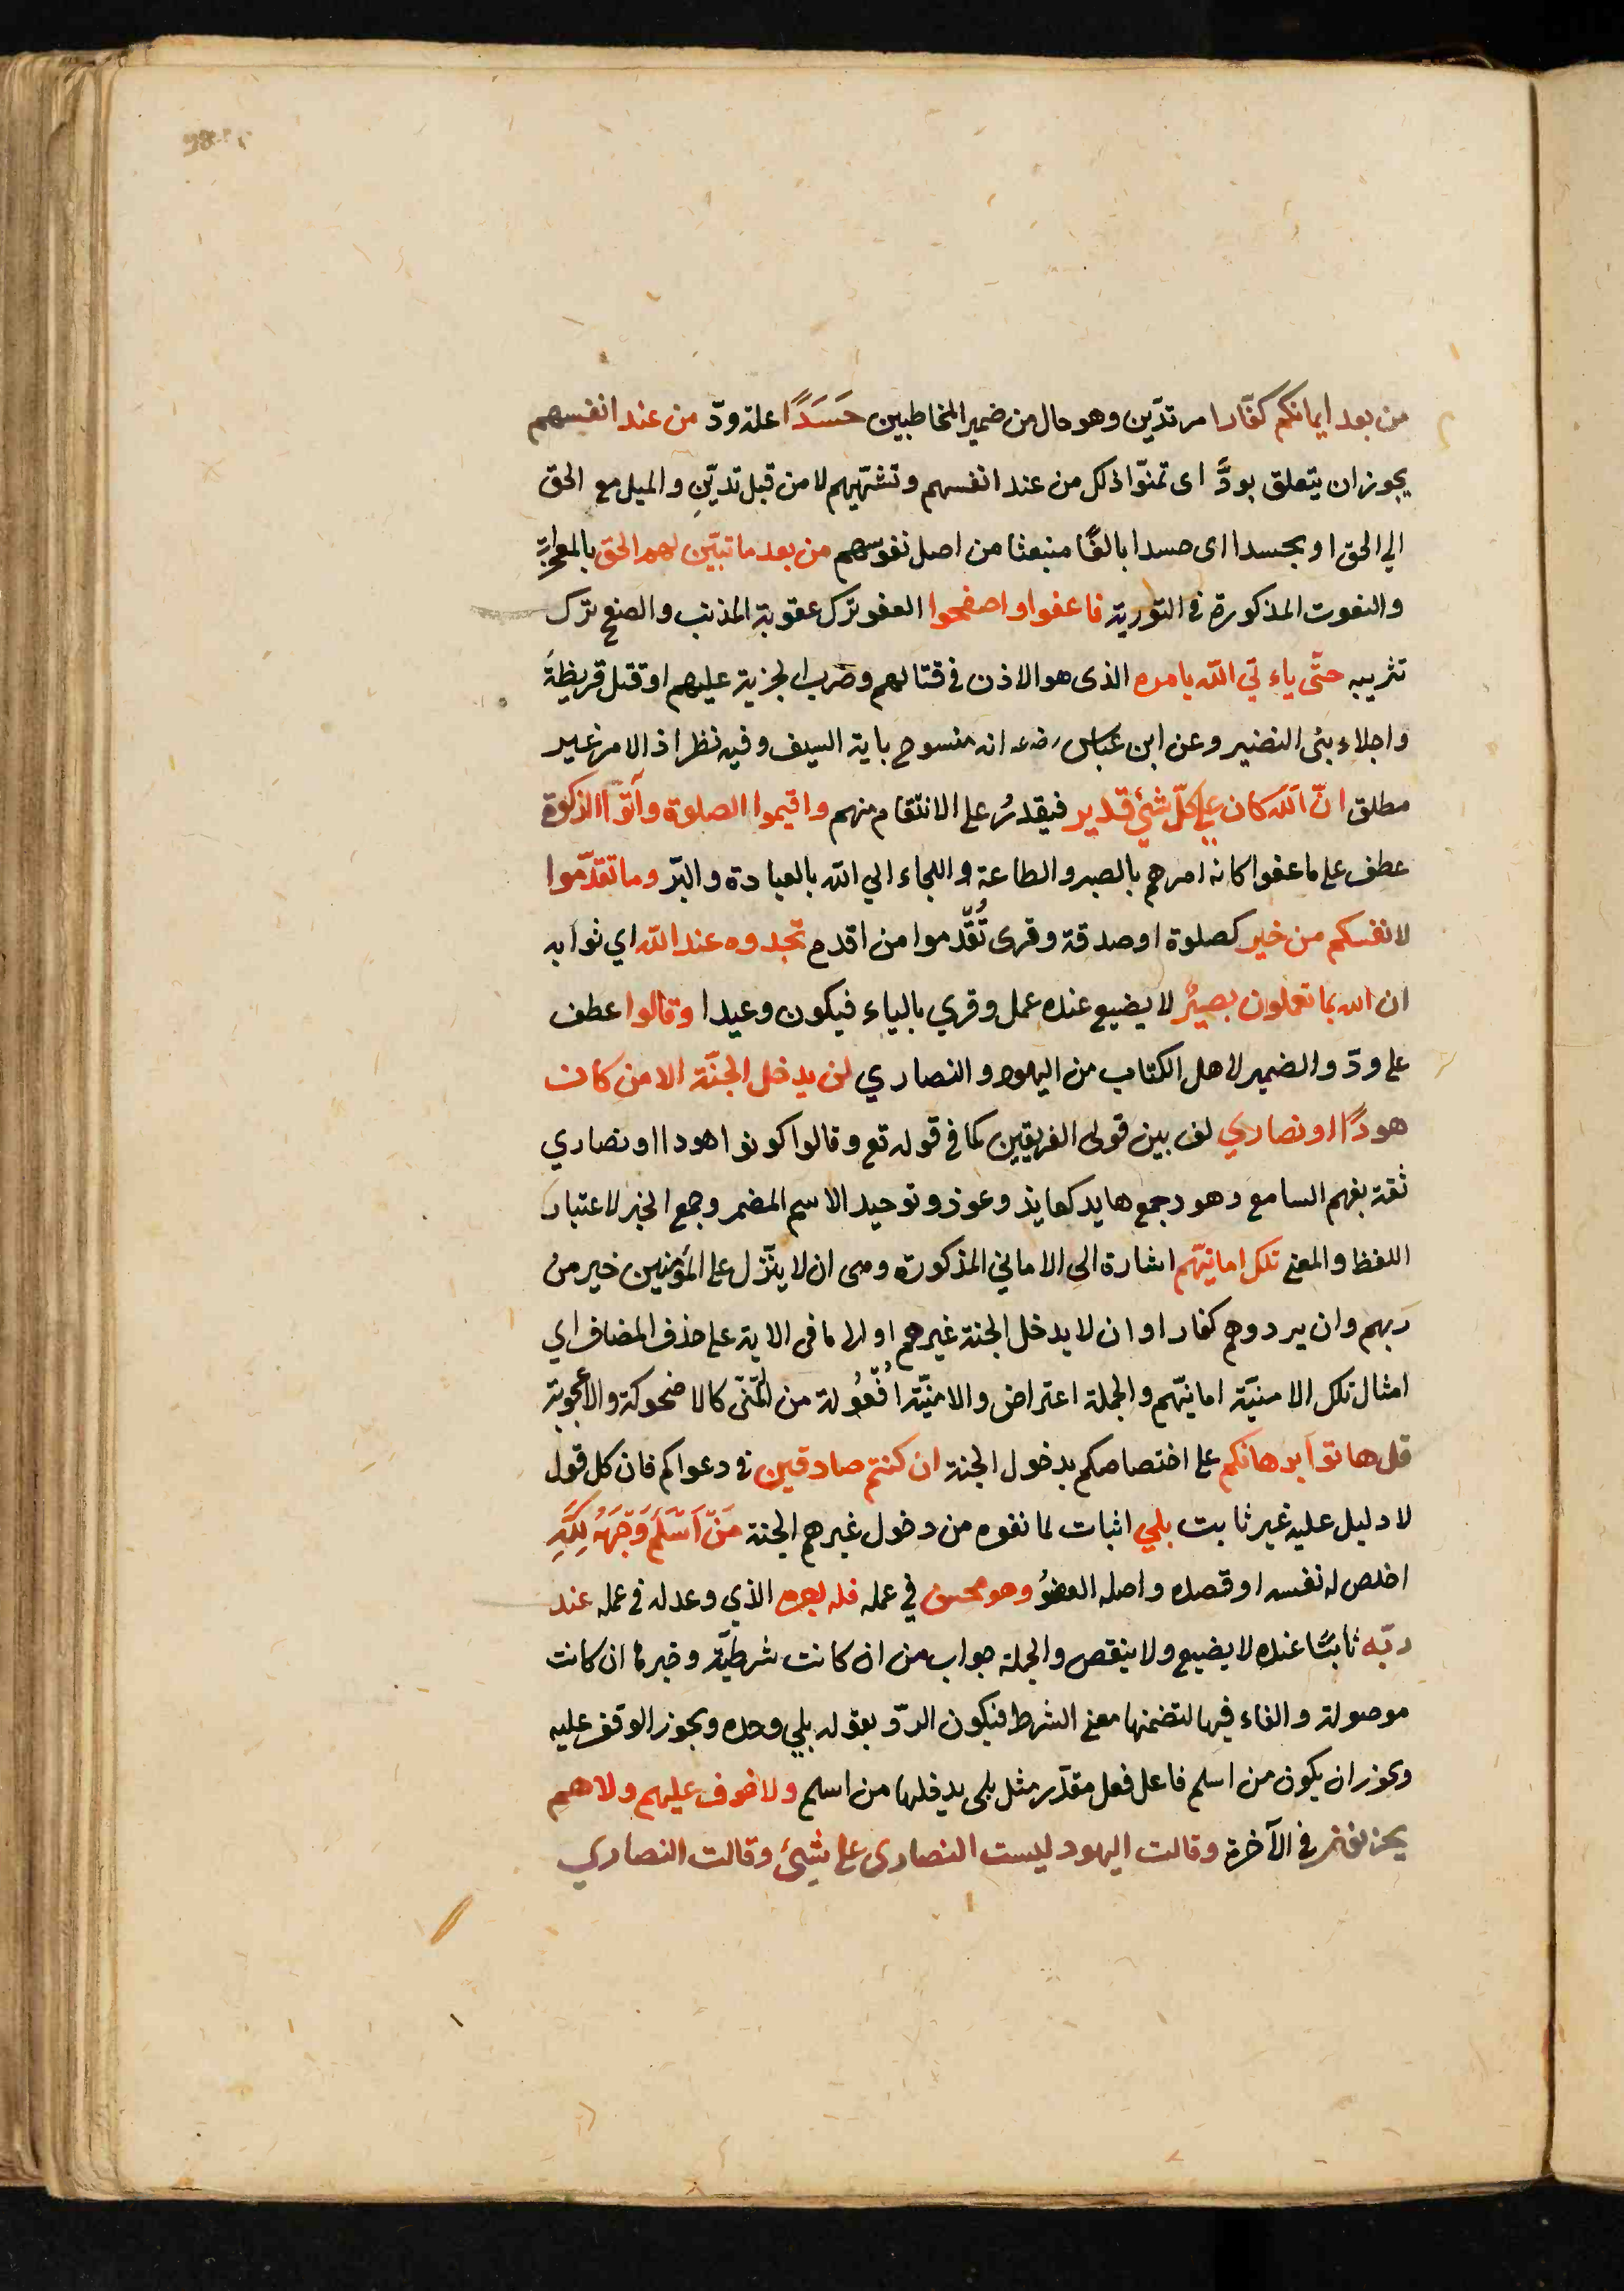 من بعد ايمانكم كفّارا مرتدّين وهو حال من ضمير المخاطبين حَسَدًا علة ودّ من عند انفسهم
يجوز ان يتعلق بودَّ اى تمنّوا ذلك من عند انفسهم وتشهّيهم لا من قبل تديّنِ والميل مع الحق
الي الحق او بحسدا اى حسدا بالغًا منبعثا من اصل نفوسهم من بعد ما تبيّن لهم الحق بالمعجزات
والنعوت المذكورة في التورية فاعفوا واصفحوا العفو ترك عقوبة المذنب والصفح ترك
تثريبه حتّى ياءتي الله بامره الذى هو الاذن في قتالهم وضرب الجزية عليهم او قتل قريظةَ
واجلاء بنى النضير وعن ابن عبّاس رضه انه منسوح باية السيف وفيه نظر اذ الامر غير
مطلق انّ الله كان علي كلّ شئ قدير فيقدرُ على الانتقام منهم واقيموا الصلوة وآتوا الزكوة
عطف على ما عفوا كانه امرهم بالصبر والطاعة واللجاء الي الله بالعبادة والبرّ وما تقدّموا
لانفسكم من خير كصلوة او صدقة وقرى تُقَدموا من اقدم تجدوه عند الله اي ثوابه
ان الله بما تعملون بصيرٌ لا يضيع عنده عمل وقري بالياء فيكون وعيدا وقالوا عطف
على ودّ والضمير لاهل الكتاب من اليهود والنصاري لن يدخل الجنّة الا من كان
هودًا او نصاري لف بين قولى الفريقين كما في قوله تع وقالوا كونوا هودا او نصاري
ثقة بفهم السامع وهود جمع هايد كعايذ وعوذ وتوحيد الاسم المضمر وجمع الخبر لاعتبار
اللفظ والمعنى تلك امانيّهم اشارة الى الاماني المذكورة ومى ان لا ينّزل على المؤمنين خير من
ربهم وان يردوهم كفارا وان لا يدخل الجنة غيرهم او الى ما فى الاية على حذف المضاف اي
امثال تلك الامنيّة امانيّهم والجملة اعتراض والامنيّة اُفعُولة من التمّنى كالاضحوكة والاعجوبة
قل هاتوا برهانكم على اختصاصكم بدخول الجنة ان كنتم صادقين في دعواكم فان كل قول
لا دليل عليه غير ثابت بلي اثبات لما نفوه من دخول غيرهم الجنة مَنْ اَسْلَمَ وَجْهَهُ لِلَّهِ
اخلص له نفسه او قصده واصله العضوُ وهو محسن في عمله فله اجره الذي وعد له في عمله عند
ربّه ثابتًا عنده لا يضيع ولا ينقص والجملة جواب من ان كانت شرطيّة وخبرها ان كانت
موصولة والفاء فيها لتضمنها معنى الشرط فيكون الردّ بقوله بلي وحده ويجوز الوقف عليه
ويجوز ان يكون من اسلم فاعل فعل مقدّر مثل بلى يدخلها من اسلم ولا خوف عليهم ولا هم
يحزنون في الآخرة وقالت اليهود ليست النصارى على شئ وقالت النصاري